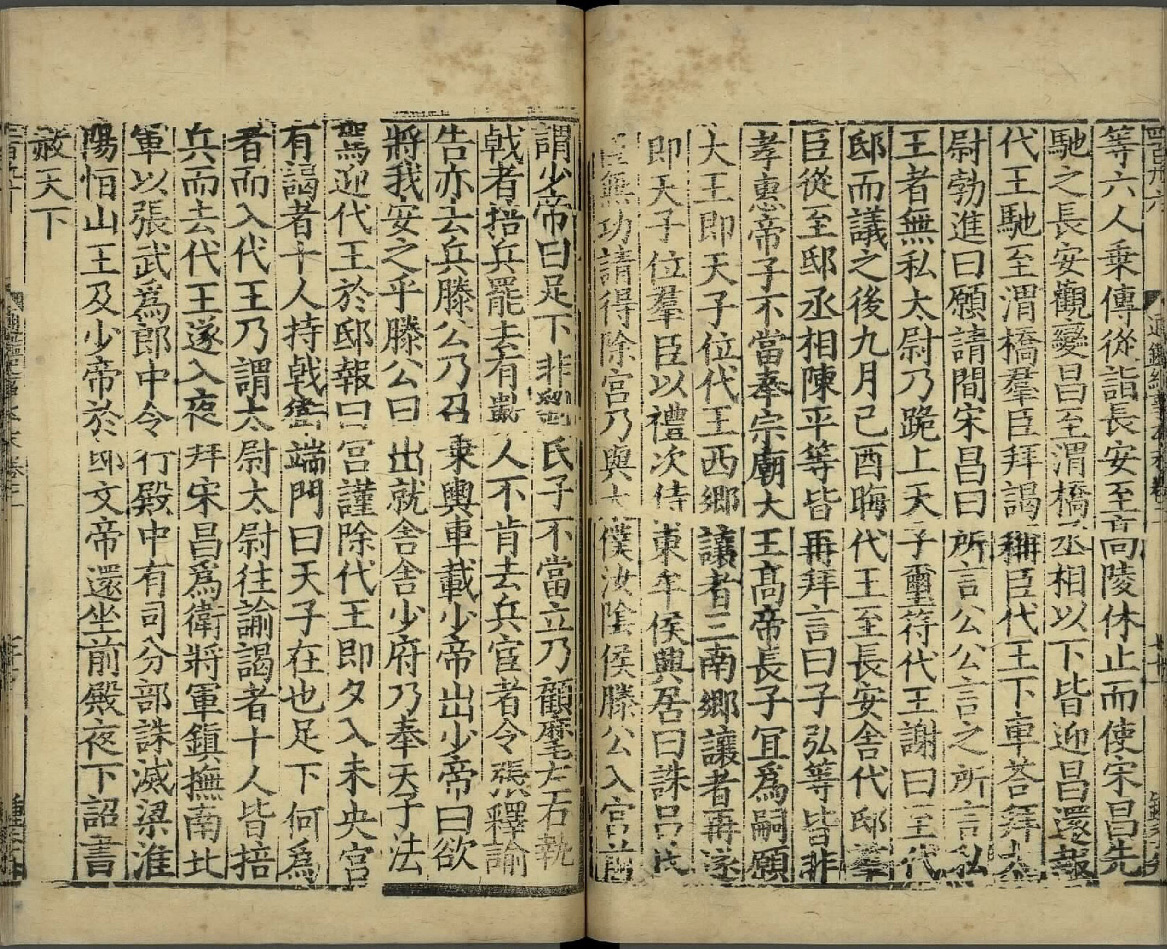 等六人乗傳從詣長安至高陵休止而使宋昌先
馳之長安觀變昌至渭橋丞相以下皆迎昌還報
代王馳至渭橋羣臣拜謁稱臣代王下車荅拜太
尉勃進曰願請間宋昌曰所言公公言之所言私
王者無私太尉乃跪上天子璽符代王謝曰至代
邸而議之後九月己酉晦代王至長安舍代邸羣
臣從至邸丞相陳平等皆再拜言曰子弘等皆非
孝惠帝子不當奉宗廟大王高帝長子宜為嗣願
大王即天子位代王西鄉讓者三南鄉讓者再遂
即天子位羣臣以禮次侍東牟侯興居曰誅呂氏
臣無功請得除宮乃與太僕汝陰侯滕公入宮前
謂少帝曰足下非劉氏子不當立乃顧麾左右執
戟者掊兵罷去有數人不肯去兵宦者令張釋諭
告亦去兵滕公乃召乗輿車載少帝出少帝曰欲
將我安之乎滕公曰出就舍舍少府乃奉天子法
駕迎代王於邸報曰宮謹除代王即夕入未央宮
有謁者十人持戟衛端門曰天子在也足下何為
者而入代王乃謂太尉太尉往諭謁者十人皆掊
兵而去代王遂入夜拜宋昌為衛將軍鎮撫南北
軍以張武為郎中令行殿中有司分部誅滅梁淮
陽恒山王及少帝於邸文帝還坐前殿夜下詔書
赦天下